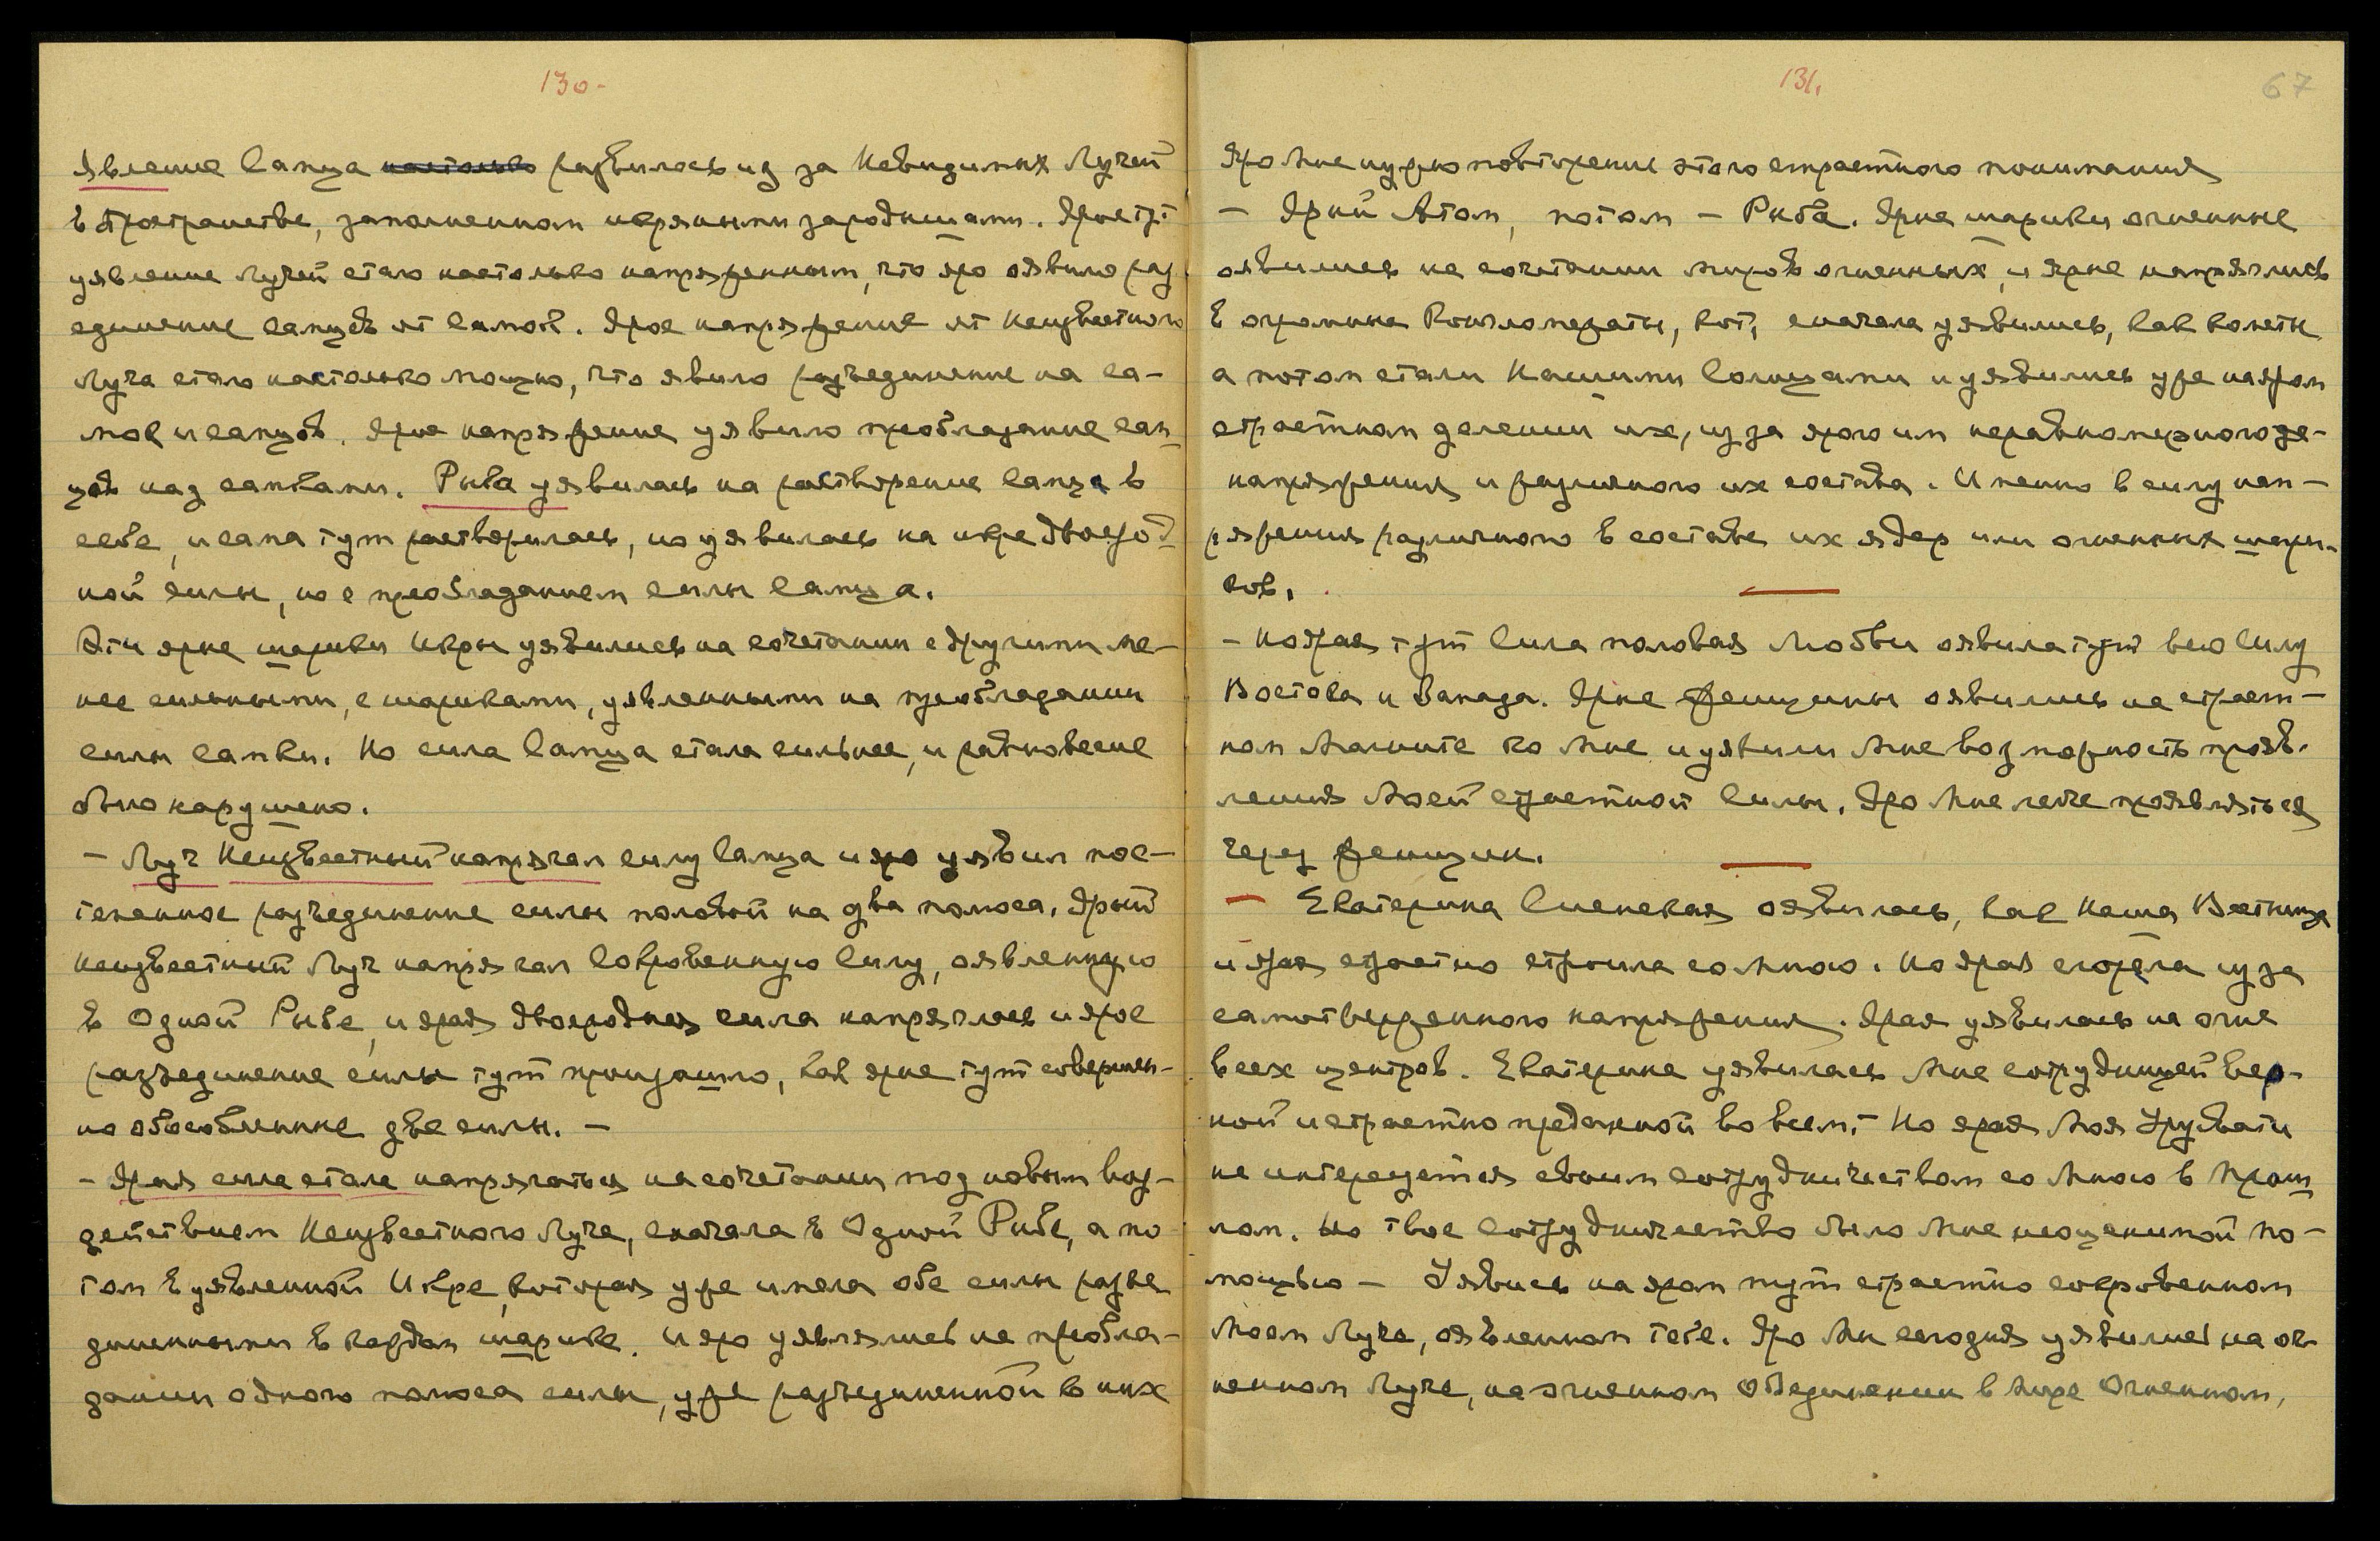 130-
Явление Самца настолько развилось из за Невидимых Лучей
в Пространстве, заполненном икряными зародышами. Ярое тут
уявление Лучей стало настолько напряженным, что яро оявило раз
единение самцов от самок. Ярое напряжение от Неизвестного
Луча стало настолько мощно, что явило разъединение на са-
мок и самцов. Ярое напряжение уявило преобладание сам-
цов над самками. Рыба уявилась на растворение самца в
себе, и сама тут растворилась, но уявилась на икре двоерод-
ной силы, но с преобладанием силы самца.
Эти ярые шарики Икры уявились на сочетании с другими ме-
нее сильными, с шариками, уявленными на преобладании
силы самки. Но сила Самца стала сильнее, и равновесие
было нарушено.
- Луч Неизвестный напрягал силу Самца и яро уявил пос-
тепенное разъединение силы половой на два полюса. Ярый
неизвестный Луч напрягал Сокровенную Силу, оявленную
в Одной Рыбе, и ярая двоеродная сила напряглась и ярое
разъединение силы тут произошло, как ярые тут совершен-
но обособленные две силы. -
- Ярая сила стала напрягаться на сочетании под новым воз-
действием Неизвестного Луча, сначала в Одной Рыбе, а по
том в уявленной Икре, которая уже имела обе силы разъе
диненными в каждом шарике. И яро уявлялись на преобла-
дании одного полюса силы, уже разъединенной в них
131.
67
Яро Мне нужно повторение этого страстного понимания
- Ярый Атом, потом - Рыба. Ярые шарики огненные
оявились на сочетании миров огненных, и ярые напряглись
в огромные Конгломераты, кот, сначала уявились, как кометы
а потом стали Нашими Солнцами и уявились уже на яром
страстном делении их, из за ярого им неравномерного де-
напряжения и различного их состава. Именно в силу нап-
ряжения различного в составе их ядер или огненных шари-
ков.
- Но ярая тут Сила половая Любви оявила тут всю Силу
Востока и Запада. Ярые Женщины оявились на страст-
ном Магните ко Мне и уявили Мне возможность прояв-
ления Моей страстной Силы. Яро Мне легче проявляться
через Женщин.
- Екатерина Сиенская оявилась, как Наша Вестница
и ярая страстно строила со Мною. Но ярая сгорела из за
самоотверженного напряжения. Ярая уявилась на огне
всех центров. Екатерина уявилась Мне сотрудницей вер-
ной и страстно преданной во всем. Но ярая Моя Урусвати
не интересуется своим сотрудничеством со Мною в Прош
лом. Но твое сотрудничество было Мне неоценимой по-
мощью - Уявись на яром тут страстно сокровенном
Моем Луче, оявленном тебе. Яро Мы сегодня уявились на ог-
ненном Луче, на огненном Объединении в Мире Огненном,